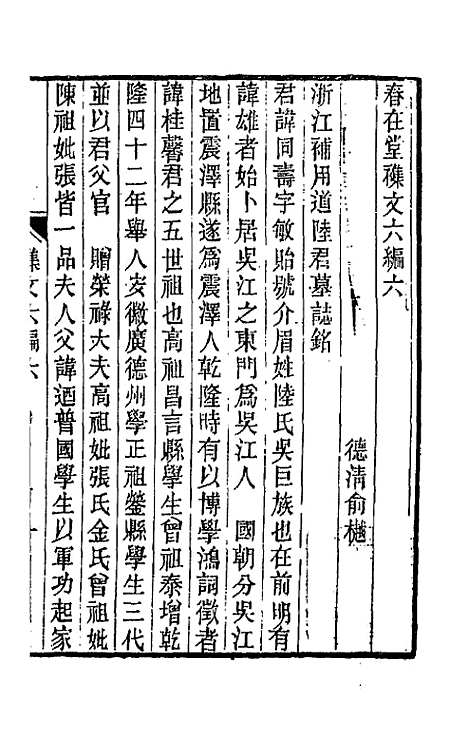 春在堂襍文六編六
德清俞樾
浙江補用道陸君墓誌銘
君諱同壽字敏貽號介眉姓陸氏吳巨族也在前明有
諱雄者始卜居吳江之東門爲吳江人　國朝分吳江
地置震澤縣遂爲震澤人乾隆時有以博學鴻詞徵者
諱桂馨君之五世祖也高祖昌言縣學生曾祖泰增乾
隆四十二年舉人安徽廣德州學正祖鎣縣學生三代
並以君父官　贈榮祿大夫高祖妣張氏金氏曾祖妣
陳祖妣張皆一品夫人父諱迺普國學生以軍功起家
襍文六編六